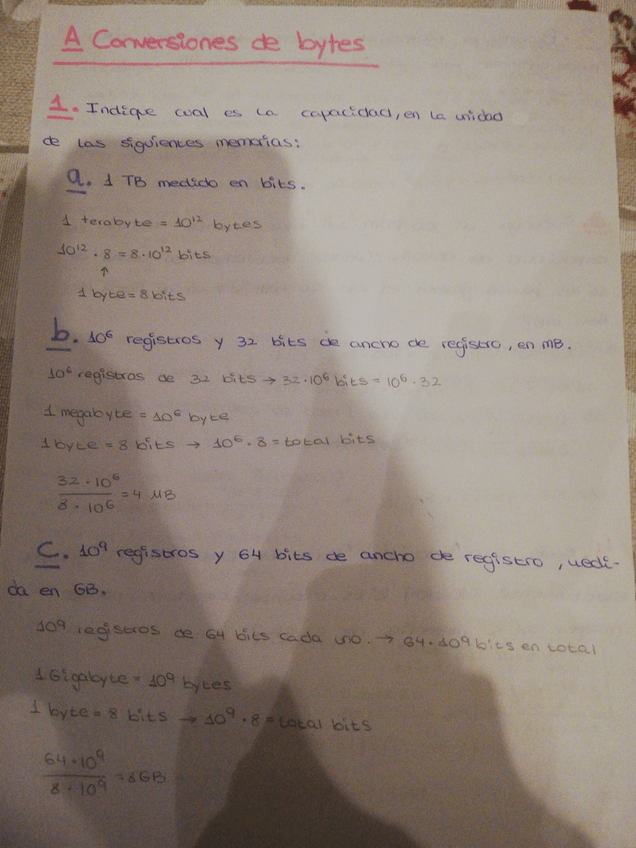 A Conversiones de bytes
1. Indique cual es la capacidad, en la unidad
de las siguientes memorias:
a. 1 TB medido en bits.
1 terabyte = 10¹² bytes
10¹² · 8 = 8·10¹² bits
↑
1 byte = 8 bits
b. 10⁶ registros y 32 bits de ancho de registro, en MB.
10⁶ registros de 32 bits → 32·10⁶ bits = 10⁶ · 32
1 megabyte = 10⁶ byte
1 byte = 8 bits → 10⁶ · 8 = total bits
32 · 10⁶
8 · 10⁶ = 4 MB
C. 10⁹ registros y 64 bits de ancho de registro, medi-
da en GB.
10⁹ registros de 64 bits cada uno. → 64·10⁹ bits en total
1 Gigabyte = 10⁹ bytes
1 byte = 8 bits → 10⁹ · 8 = total bits
64·10⁹
8 · 10⁹ = 8GB